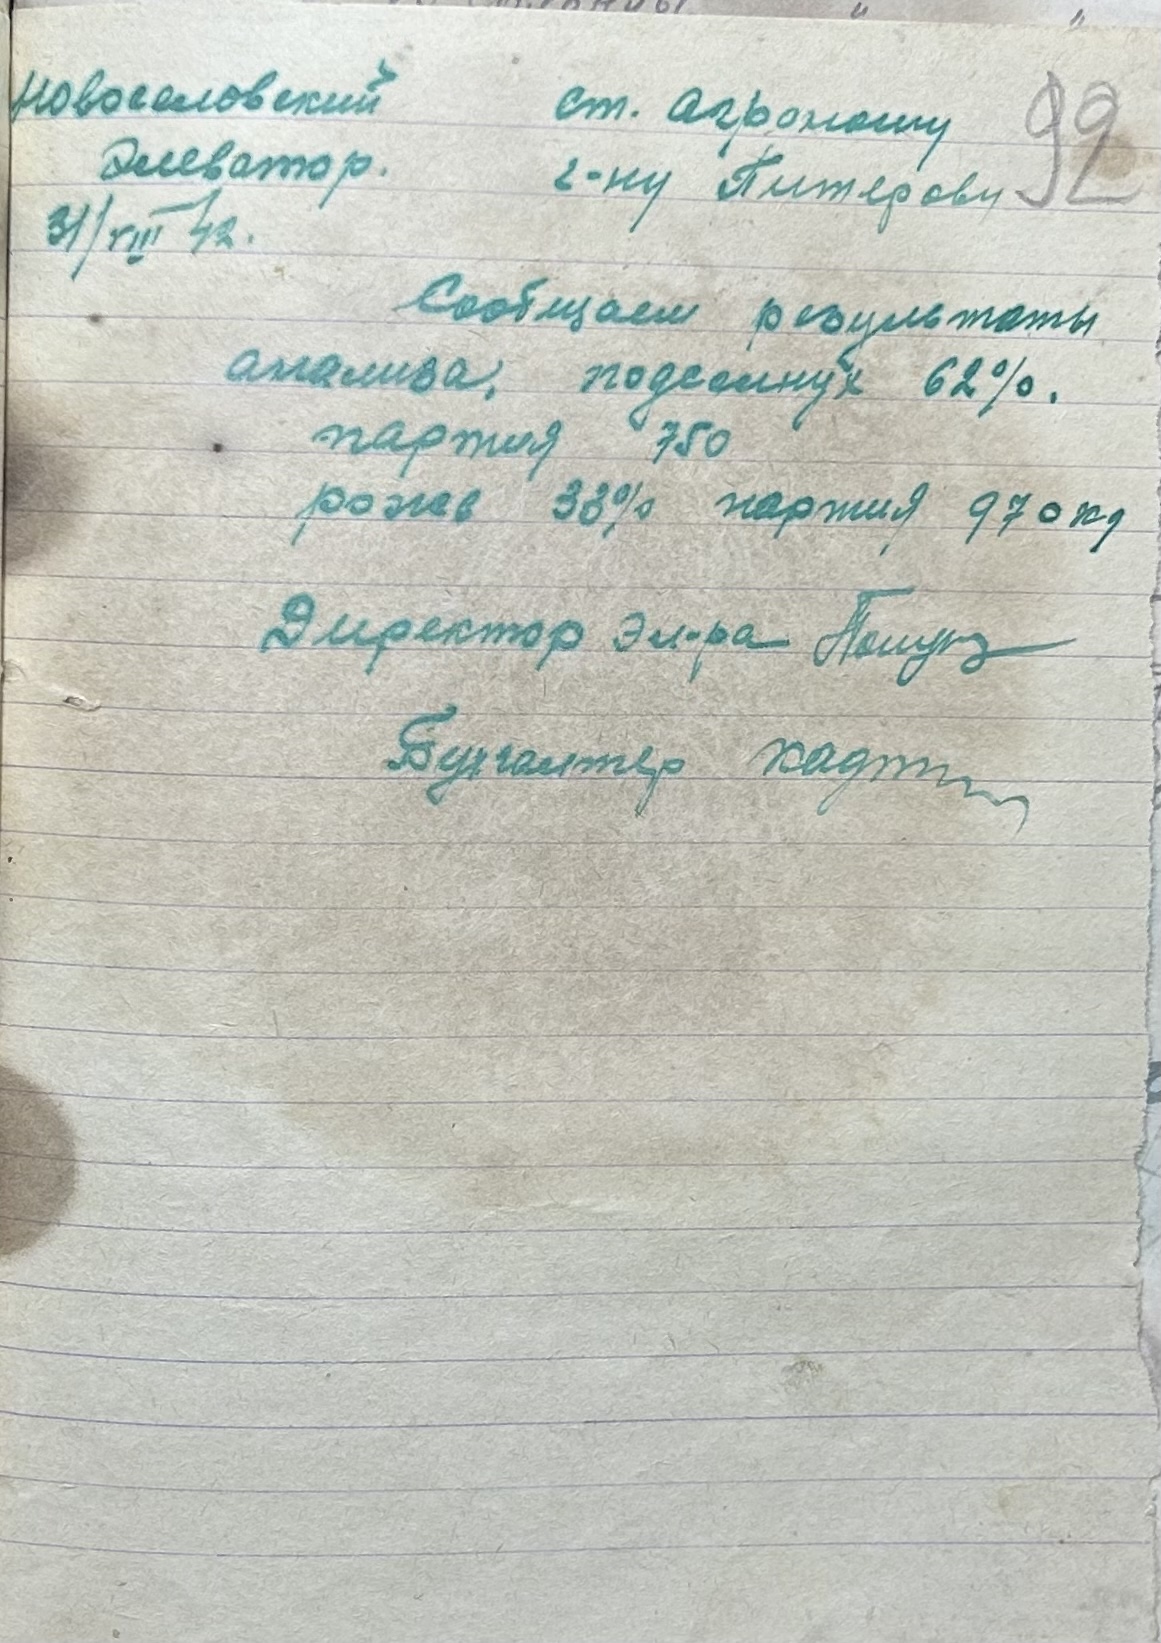 Новоселовский
Элеватор.
31/VIII 42.
ст. агроному
г-ну Питерову
92
Сообщаем результаты
анализа, подсолнух 62%.
партия 750
рожь 33% партия 970 кг
Директор эл-ра
Бухгалтер